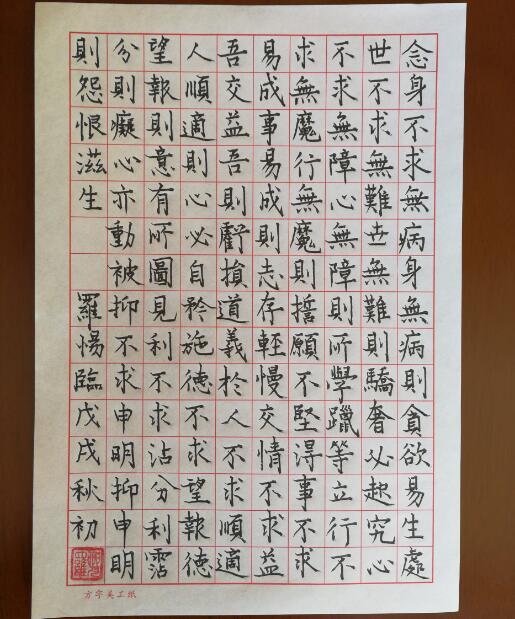 念身不求無病身無病則貪欲易生處
世不求無難世無難則驕奢必起究心
不求無障心無障則所學躐等立行不
求無魔行無魔則誓願不堅淂事不求
易成事易成則志存輕慢交情不求益
吾交益吾則虧損道義於人不求順適
人順適則心必自矜施德不求望報德
望報則意有所圖見利不求沾分利霑
分則癡心亦動被抑不求申明抑申明
則怨恨滋生 羅惕臨戊戌秋初
方字美工纸